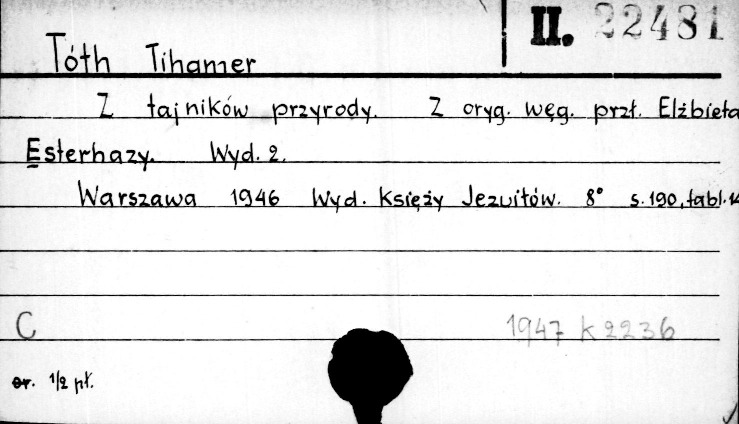 II. 22481
Tóth Tihamer
Z tajników przyrody. Z oryg. węg. przł. Elżbieta
Esterhazy. Wyd. 2.
Warszawa 1946 Wyd. Księży Jezuitów. 8° s. 190, tabl. 14
C
1947 k 2236
or. 1/2 pł.